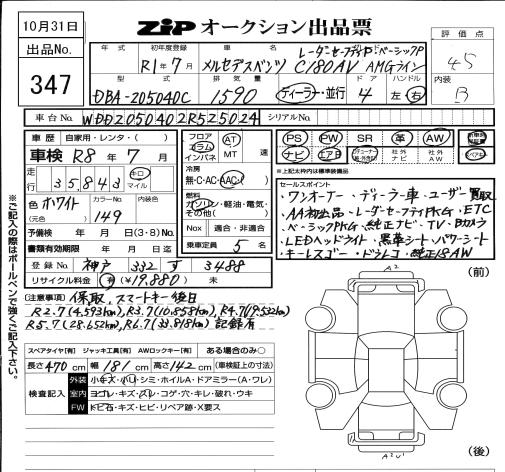 10月31日
ZiP オークション出品票
出品No.
347
評価点
4.5
内装
B
年式 初年度登録 車名 レーダーセーフティP ベーシックP
R1年7月 メルセデスベンツ C180AV AMGライン
型式 排気量 ドア ハンドル
DBA-205040C 1590 ディーラー・並行 4 左・右
車台No. WDD2050402R525024 シリアルNo.
車歴 自家用・レンタ・( )
車検 R8年7月
走行 35,843 キロ マイル
色 ホワイト (元色) カラーNo. 149 内装色
予備検 年 月 日(3・8)No.
書類有効期限 年 月 日迄
登録No. 神戸 332 す 3488
リサイクル料金 有(¥19,880) 未
フロア コラム インパネ AT MT 速
冷房 無・C・AC・AAC
燃料 ガソリン・軽油・電気・その他( )
Nox 適合・非適合
乗車定員 5名
PS PW SR 革 AW
ナビ エアB 社外ナビ 社外AW
※上記太枠内は標準装備品
セールスポイント
・ワンオーナー・ディーラー車・ユーザー買取
・AA初出品・レーダーセーフティPKG・ETC
・ベーシックPKG・純正ナビ・TV・Bカメラ
・LEDヘッドライト・黒革シート・パワーシート
・キーレスゴー・ドラレコ・純正18AW
(注意事項) 保、取、スマートキー後日
R2.7(4,593km)、R3.7(10,858km)、R4.7(19,532km)
R5.7(28,652km)、R6.7(33,818km)記録有
スペアタイヤ[有] ジャッキ工具[有] AWロックキー[有] ある場合のみ○
長さ470cm 幅181cm 高さ142cm (車検証上の寸法)
検査記入
外装 小キズ・小凹・シミ・ホイルA・ドアミラー(A・ワレ)
室内 ヨゴレ・キズ・スレ・コゲ・穴・キレ・破れ・ウキ
FW トビ石・キズ・ヒビ・リペア跡・X要ス
※ご記入の際はボールペンで強くご記入下さい。
A2
(前)
(後)